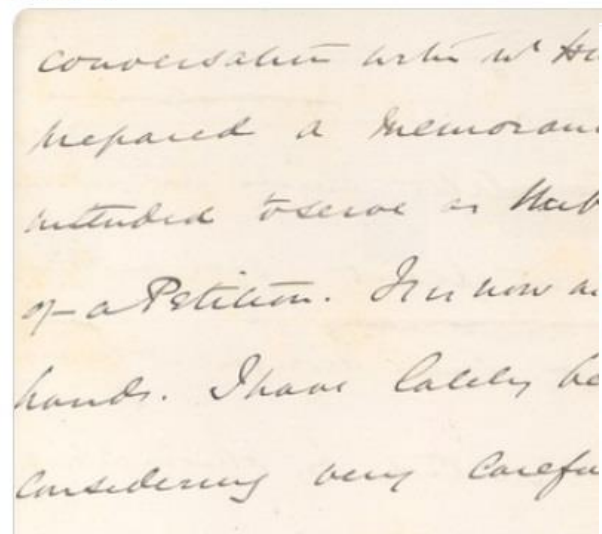 conversation with Mr Hu
prepared a memoran
intended to serve as the b
of a Petition. It is now in
hands. I have lately be
considering very carefu